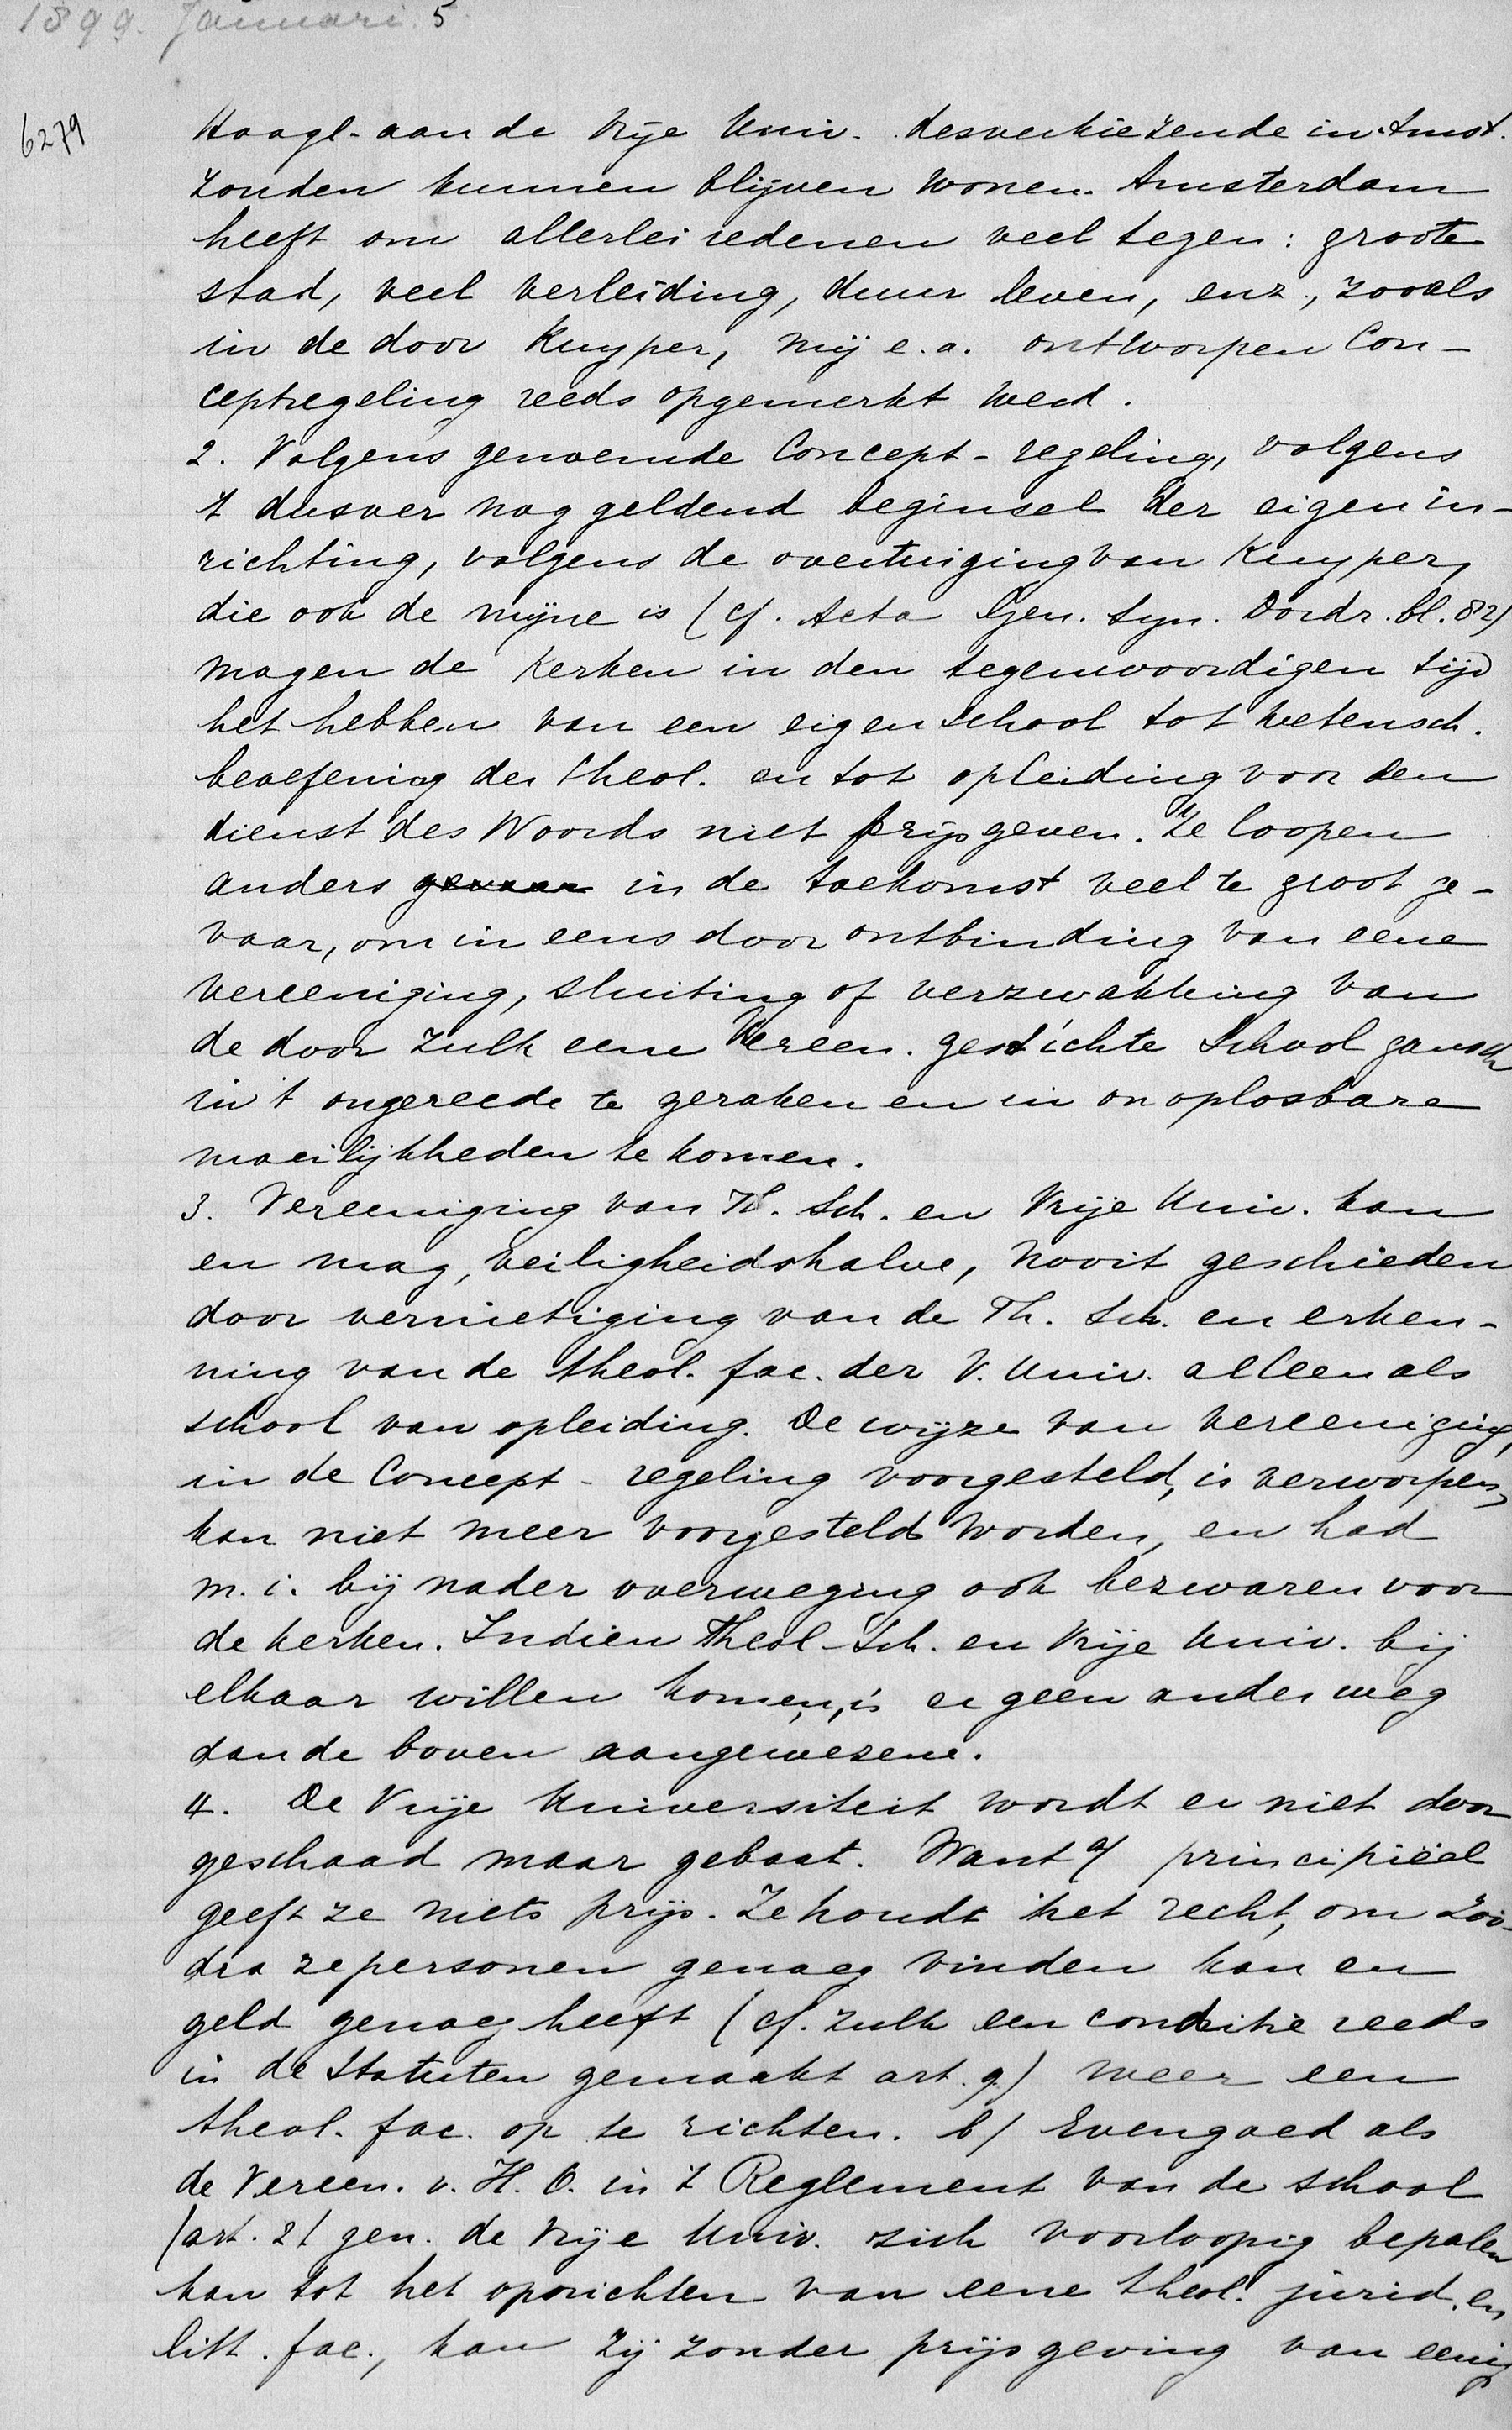 1899. Januari. 5
6279
Hoogl. aan de Vrije Univ. desverkiezende in Amst.
zouden kunnen blijven wonen. Amsterdam
heeft om allerlei redenen veel tegen: groote
stad, veel verleiding, duur leven, enz., zooals
in de door Kuyper, mij e.a. ontworpen Con-
ceptregeling reeds opgemerkt werd.
2. Volgens genoemde Concept-regeling, volgens
't dusver nog geldend beginsel der eigen in-
richting, volgens de overtuiging van Kuyper,
die ook de mijne is (cf. Acta Gen. Syn. Dordr. bl. 82)
mogen de Kerken in den tegenwoordigen tijd
het hebben van een eigen school tot wetensch.
beoefening der theol. en tot opleiding voor den
dienst des Woords niet prijsgeven. Ze loopen
anders gevaar in de toekomst veel te groot ge-
vaar, om in eens door ontbinding van eene
vereeniging, sluiting of verzwakking van
de door zulk eene Vereen. gestichte School gansch
in 't ongereede te geraken en in onoplosbare
moeilijkheden te komen.
3. Vereeniging van Th. Sch. en Vrije Univ. kan
en mag, veiligheidshalve, nooit geschieden
door vernietiging van de Th. Sch. en erken-
ning van de theol. fac. der V. Univ. alleen als
school van opleiding. De wijze van vereeniging,
in de Concept-regeling voorgesteld, is verworpen,
kan niet meer voorgesteld worden, en had
m.i. bij nader overweging ook bezwaren voor
de kerken. Indien Theol-Sch. en Vrije Univ. bij
elkaar willen komen, is er geen ander weg
dan de boven aangewezene.
4. De Vrije Universiteit wordt er niet door
geschaad maar gebaat. Want a/ principiëel
geeft ze niets prijs. Ze houdt het recht, om zoo-
dra ze personen genoeg vinden kan en
geld genoeg heeft (cf. zulk een conditie reeds
in de Statuten gemaakt art. 9) weer een
theol. fac. op te richten. b/ Evengoed als
de Vereen. v. H. O. in 't Reglement van de school
(art. 2) gen. de Vrije Univ. zich voorloopig bepalen
kan tot het oprichten van eene theol. jurid. en
litt. fac., kan zij zonder prijsgeving van eenig